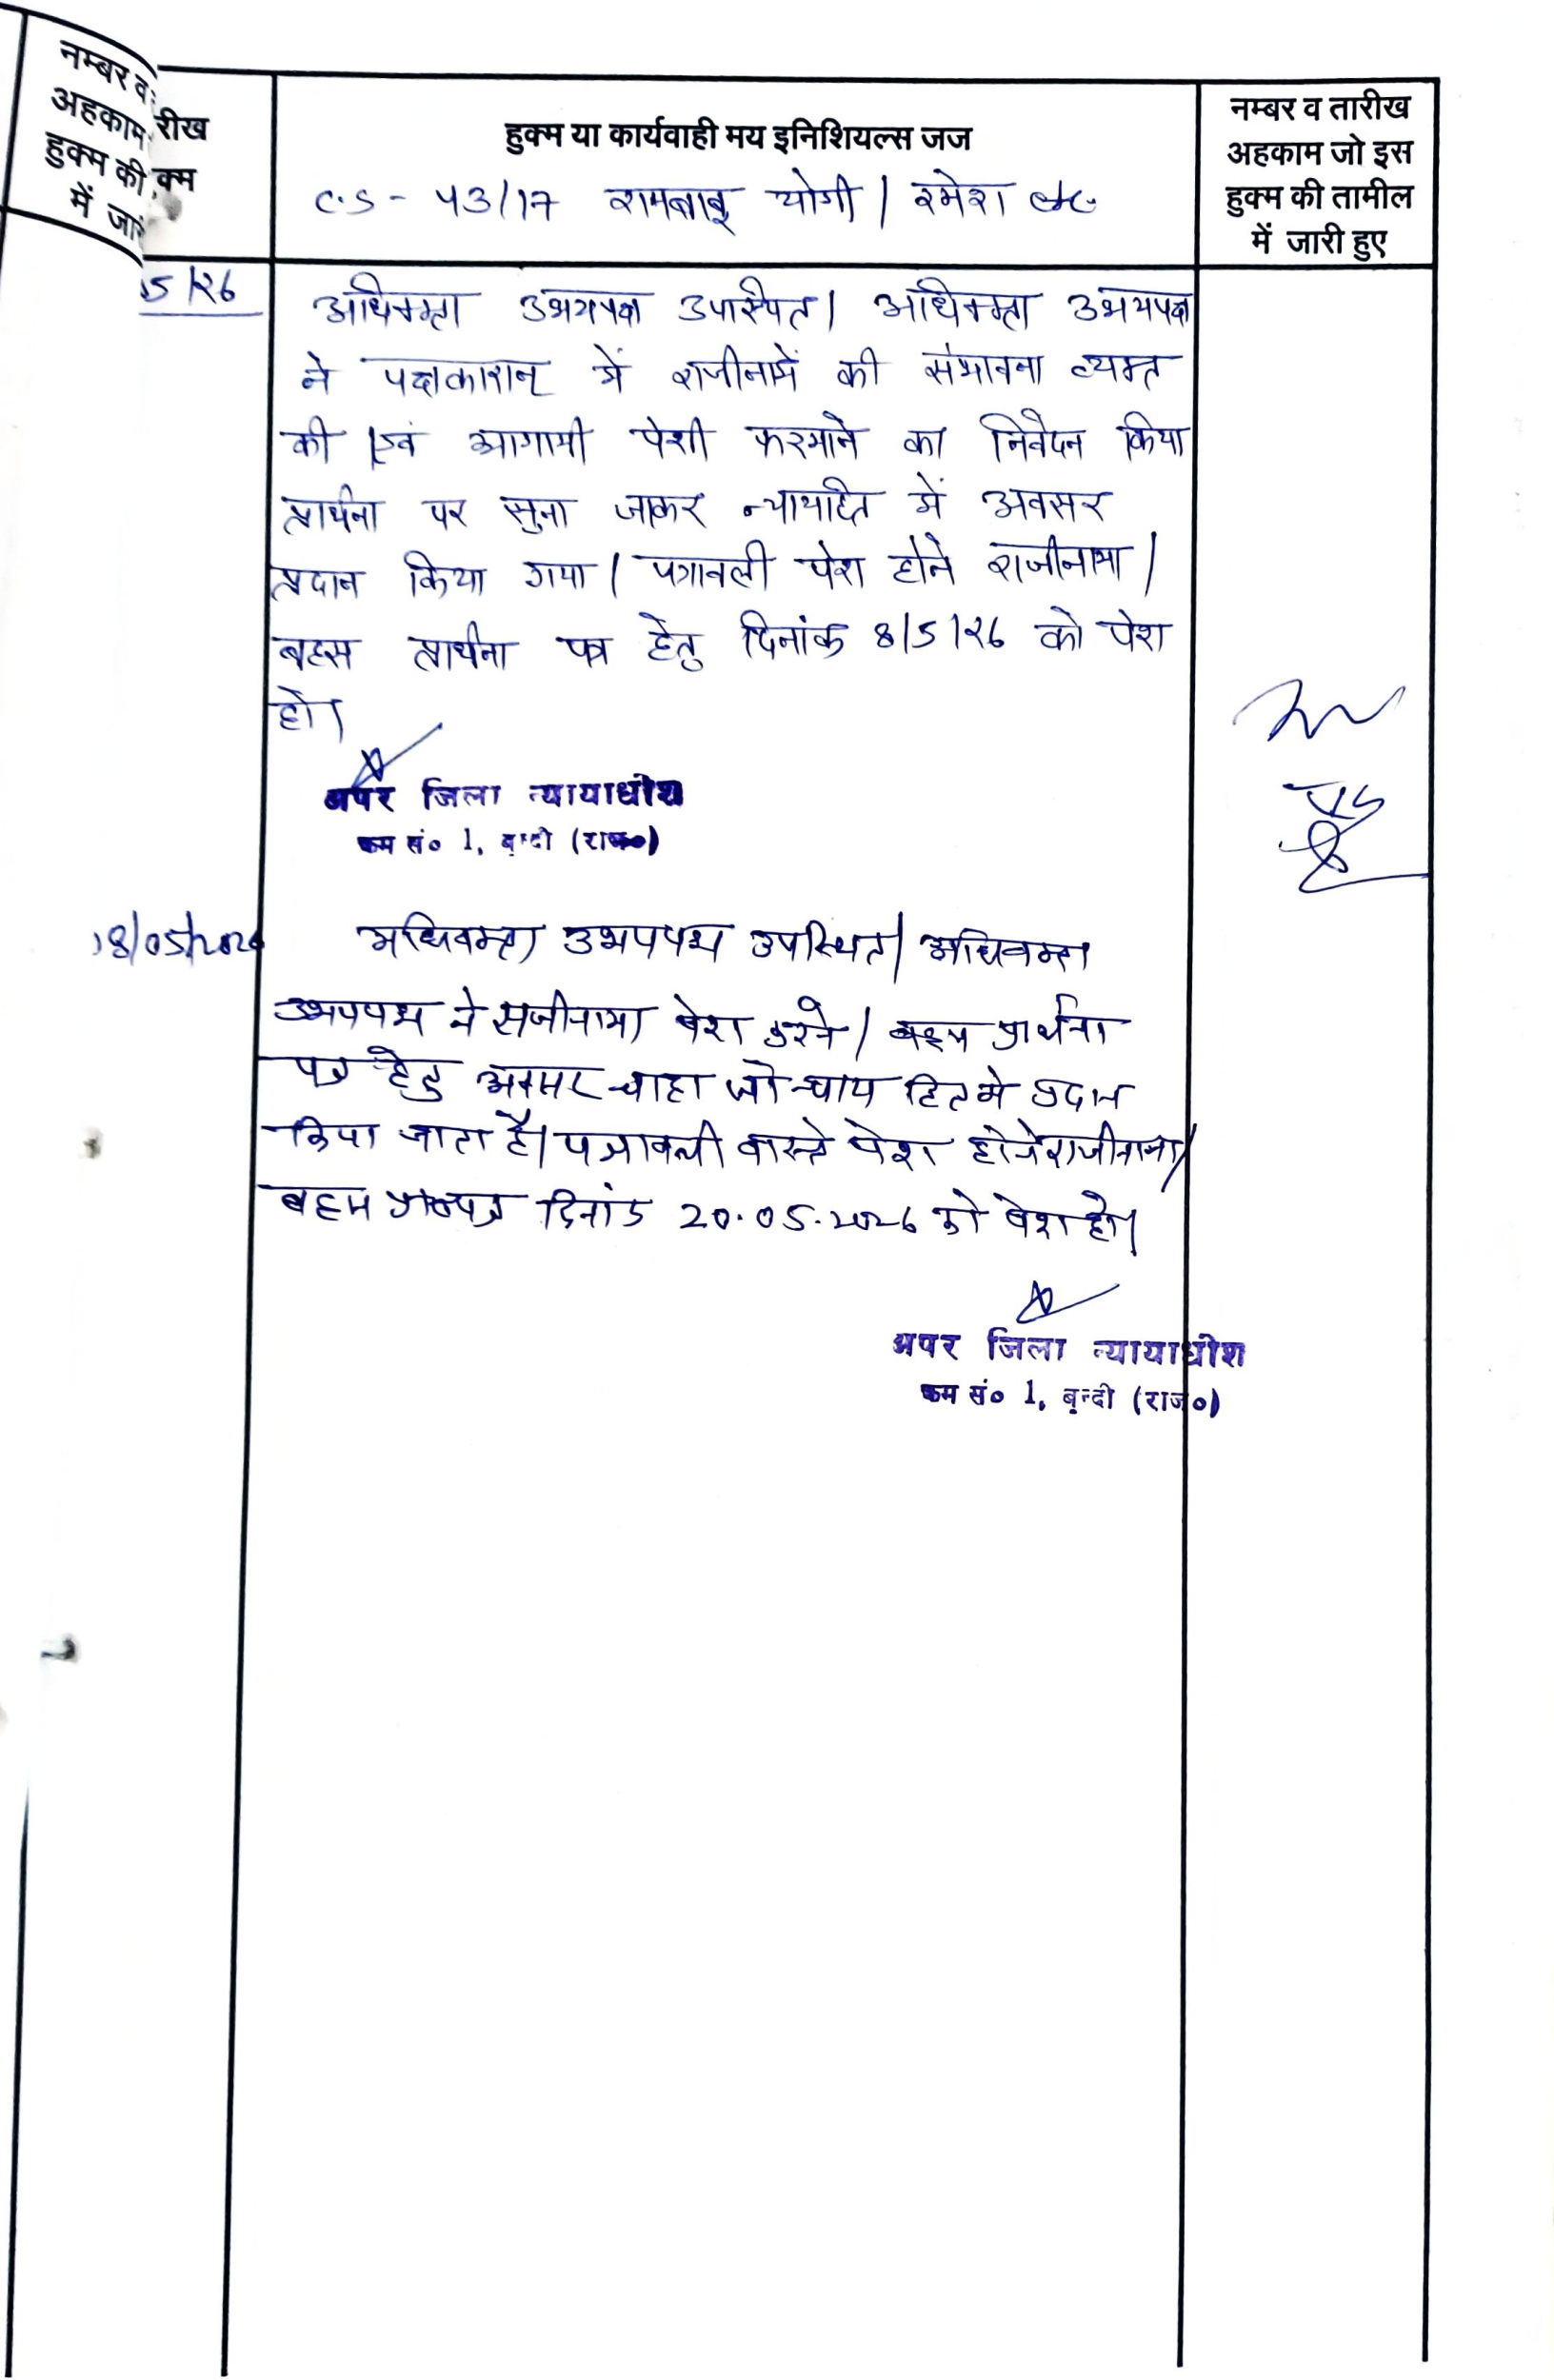 नम्बर व
अहकाम रीख
हुक्म की क्म
में जा
हुक्म या कार्यवाही मय इनिशियल्स जज
C.S - 43/17 रामबाबू योगी / रमेश etc.
नम्बर व तारीख
अहकाम जो इस
हुक्म की तामील
में जारी हुए
5/26
अधिवक्ता उभयपक्ष उपस्थित। अधिवक्ता उभयपक्ष
ने पक्षकारान् में राजीनामें की संभावना व्यक्त
की एवं आगामी पेशी फरमाने का निवेदन किया
प्रार्थना पर सुना जाकर न्यायहित में अवसर
प्रदान किया गया। पत्रावली पेश होने राजीनामा /
बहस प्रार्थना पत्र हेतु दिनांक 8/5/26 को पेश
हो।
अपर जिला न्यायाधीश
क्रम सं० 1, बून्दी (राज०)
18/05/2026
अधिवक्ता उभयपक्ष उपस्थित। अधिवक्ता
उभयपक्ष ने राजीनामा पेश करने / बहस प्रार्थना
पत्र हेतु अवसर चाहा जो न्याय हित मे प्रदान
किया जाता है। पत्रावली वास्ते पेश होने राजीनामा /
बहस प्रा०पत्र दिनांक 20.05.2026 को पेश हो।
अपर जिला न्यायाधीश
क्रम सं० 1, बून्दी (राज०)